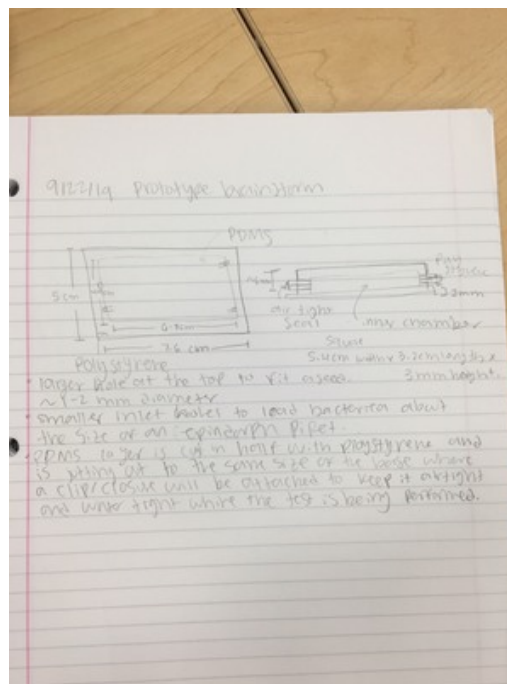 9/22/19 Prototype brainstorm
PDMS
5cm
7.6 cm
Polystyrene
air tight
seal
inner chamber
3mm height.
larger hole at the top to fit a seed.
~1-2 mm diameter
smaller inlet holes to load bacteria about
the size of an epindorph pipet.
PDMS layer is cut in half with polystyrene and
is jutting out to the same size of the base where
a clip/closure will be attached to keep it airtight
and water tight while the test is being performed.